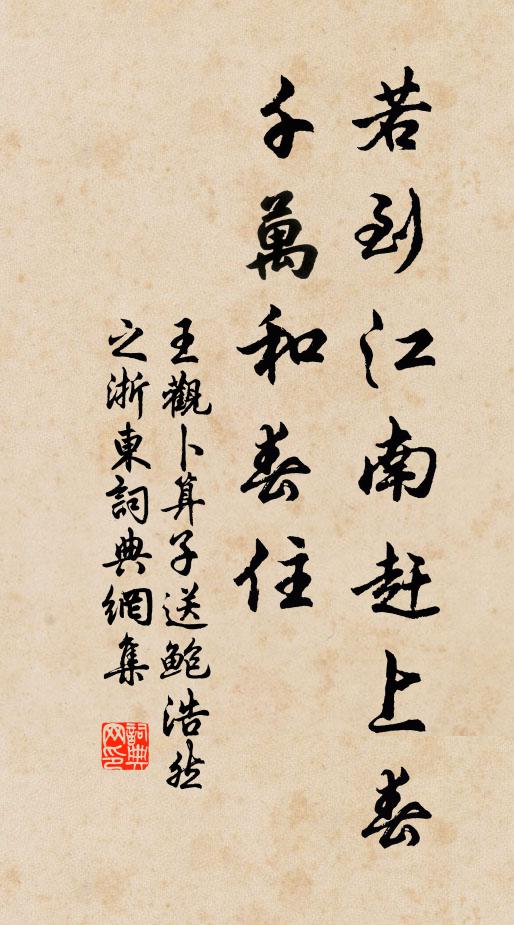 若到江南赶上春
千萬和春住
王觀卜算子送鮑浩然
之浙東詞典網集
詞典
网印